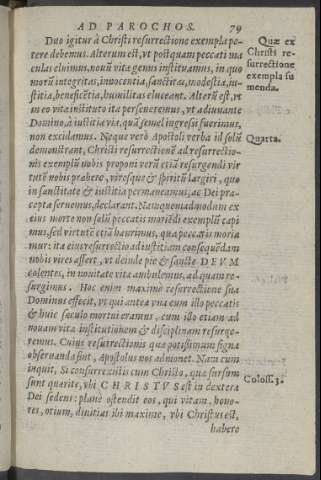 AD PAROCHOS. 79
Duo igitur à Christi resurrectione exempla pe-
tere debemus. Alterum est, vt postquam peccati ma
culas eluimus, nouũ vitæ genus instituamus, in quo
morũ integritas, innocentia, sanctitas, modestia, iu-
stitia, beneficẽtia, humilitas eluceant. Alterũ est, vt
in eo vitæ instituto ita perseueremus, vt adiuuante
Domino, à iustitiæ via, quã semel ingressi fuerimus,
non excidamus. Neque verò Apostoli verba id solũ
demonstrant, Christi resurrectionẽ ad resurrectio-
nis exemplũ nobis proponi verũ etiã resurgendi vir
tutẽ nobis præbere, viresque & spiritũ largiri, quo
in sanctitate & iustitia permaneamus, ac Dei præ-
cepta seruemus, declarant. Nam quemadmodum ex
eius morte non solũ peccatis moriẽdi exemplũ capi
mus, sed virtutẽ etiã haurimus, qua peccatis moria
mur: ita eius resurrectio ad iustitiam consequẽdam
nobis vires affert, vt deinde piè & sanctè DEVM
colentes, in nouitate vitæ ambulemus, ad quam re-
surgimus. Hoc enim maximè resurrectione sua
Dominus effecit, vt qui antea vnà cum illo peccatis
& huic sæculo mortui eramus, cum illo etiam ad
nouam vitæ institutionem & disciplinam resurge-
remus. Cuius resurrectionis quæ potissimum signa
obseruanda sint, Apostolus nos admonet. Nam cum
inquit, Si consurrexistis cum Christo, quæ sursum
sunt quærite, vbi CHRISTVS est in dextera
Dei sedens: planè ostendit eos, qui vitam, hono-
res, otium, diuitias ibi maximè, vbi Christus est,
habere
Quæ ex
Christi re-
surrectione
exempla su
menda.
Quarta.
Coloss. 3.